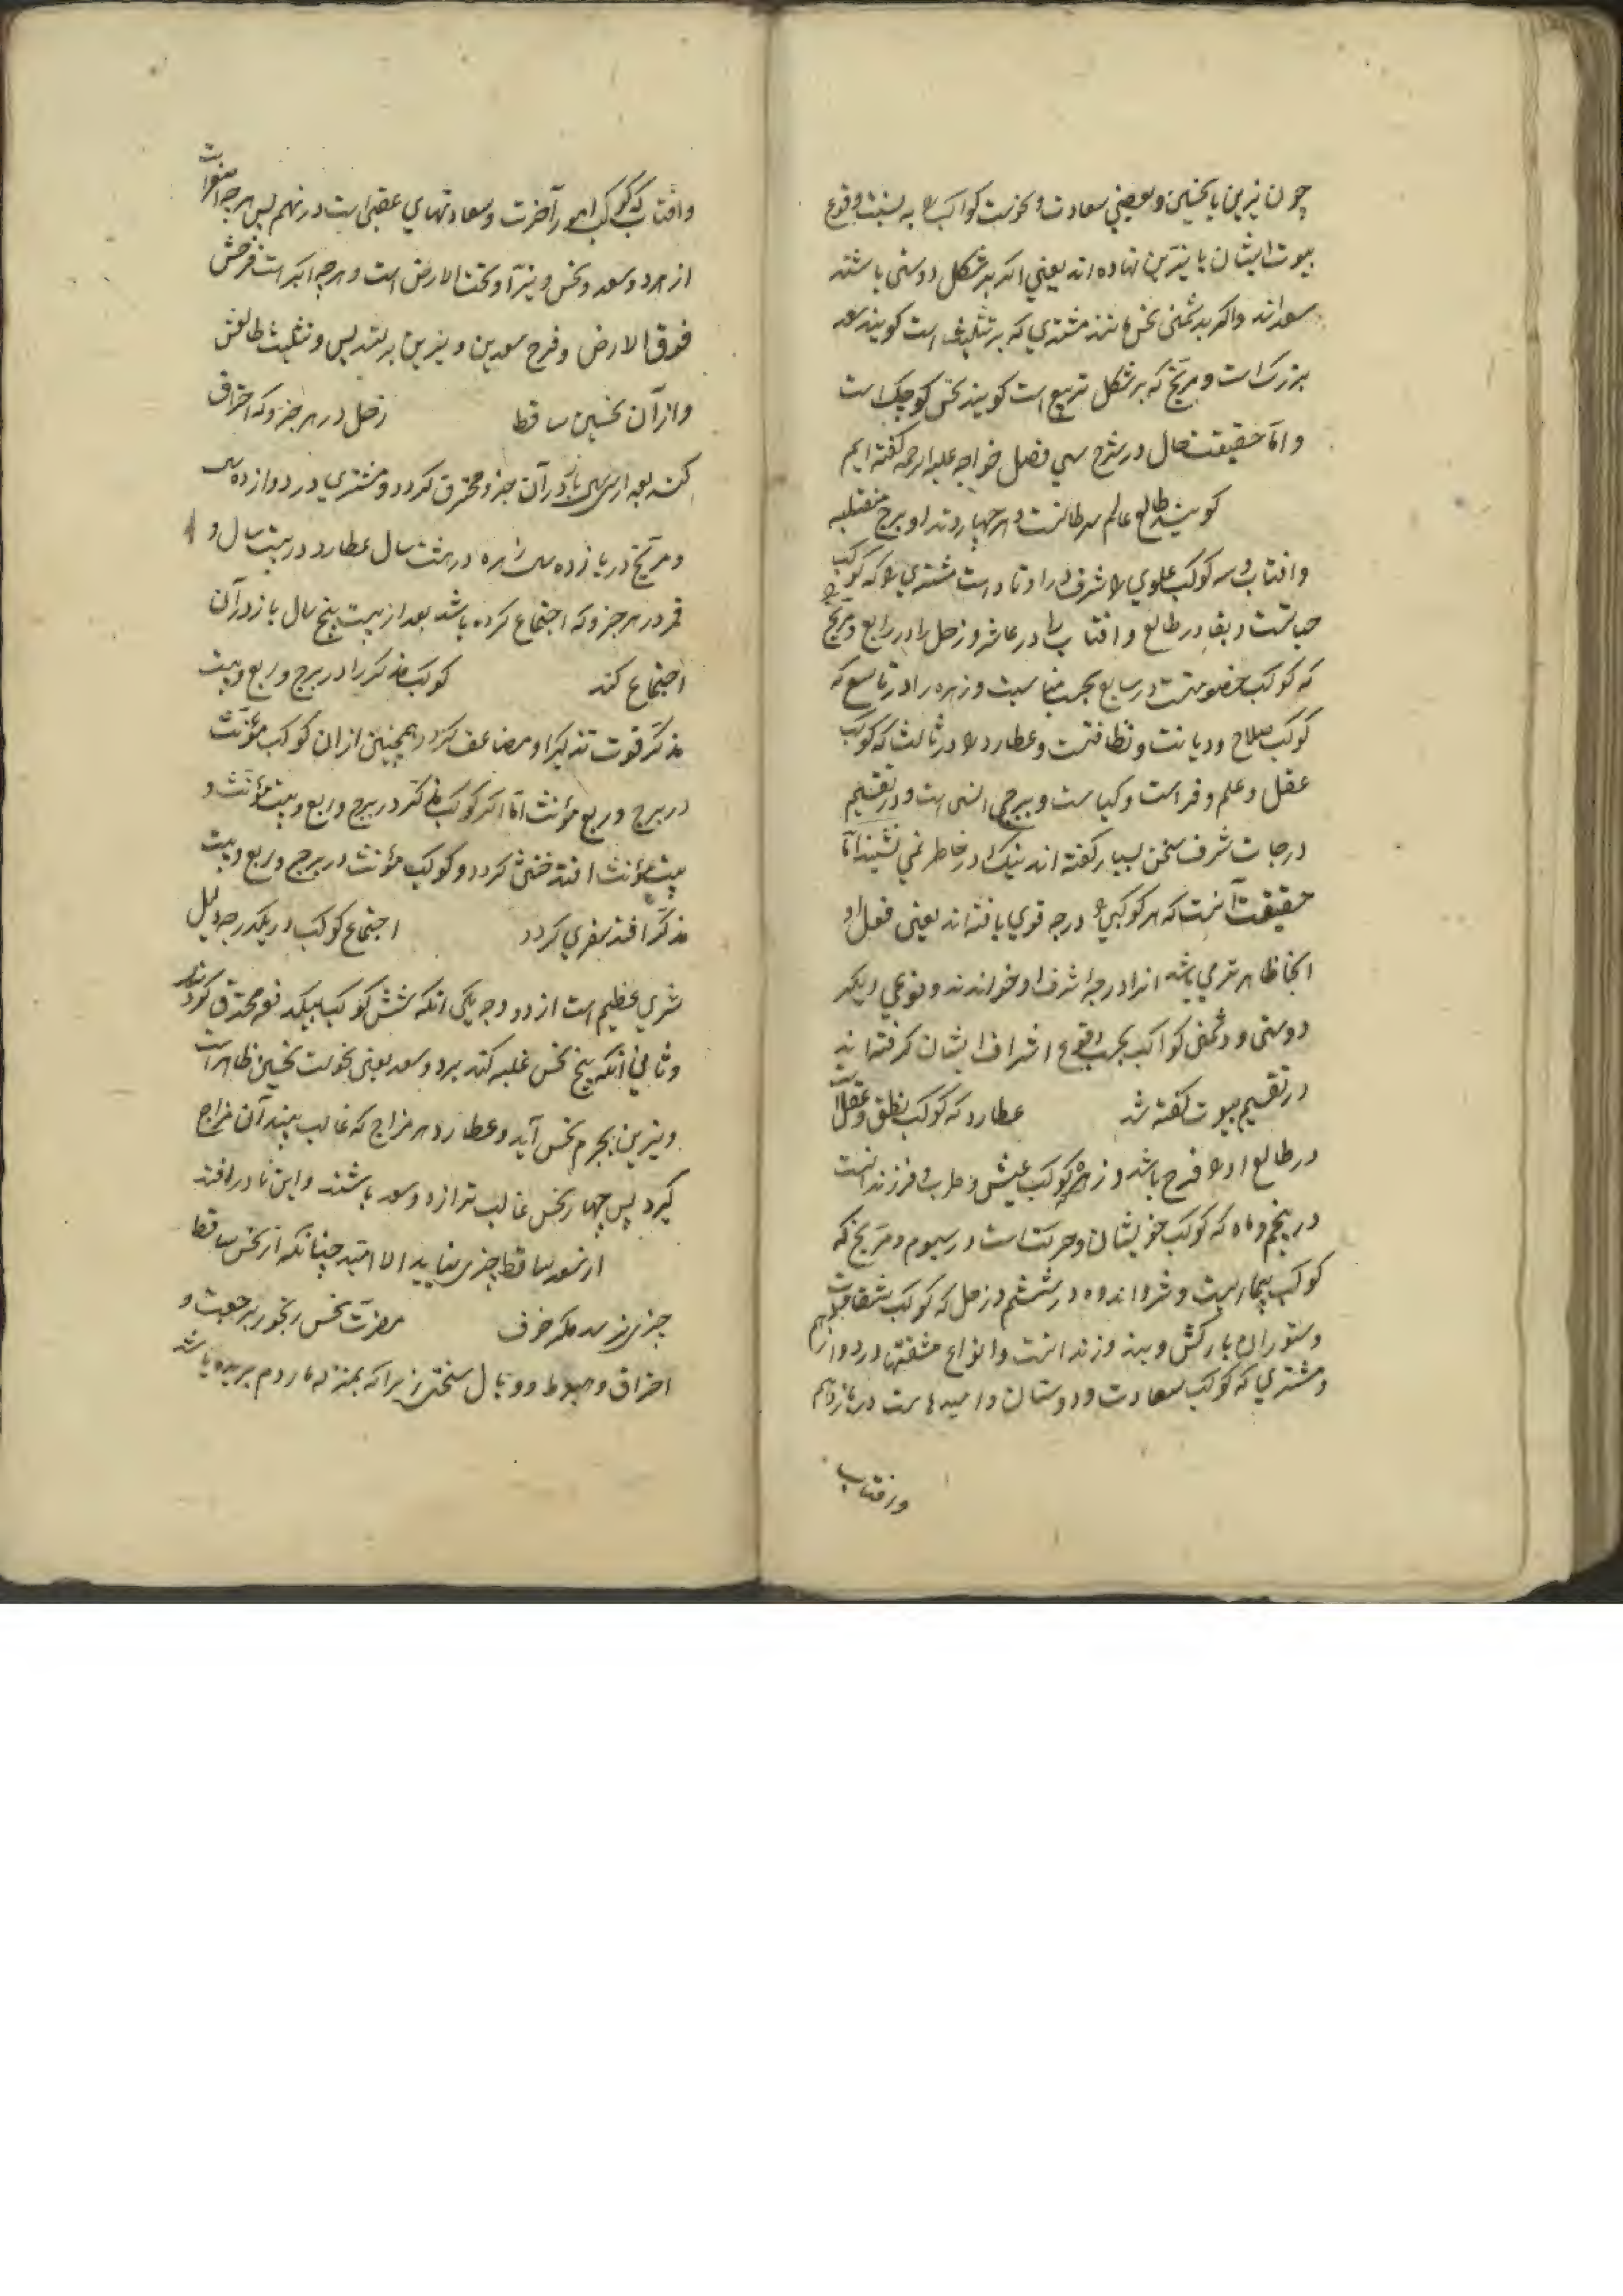 چون نیرین با نحسین و بعضی سعادت و نحوست کواکب را به نسبت وقوع
بیوت ایشان با نیرین نهاده اند یعنی اگر بر شکل دوستی باشند
سعداند و اگر بدشمنی نحس مانند مشتری که بر تثلیث است کویند سعد
بزرک است و مریخ که بر شکل تربیع است کویند نحس کوچک است
و امّا حقیقت حال در شرح سی فصل خواجه علیه الرحمه کفته ایم
کویند طالع عالم سرطانست و هر چهار وتد او برج منقلبه
و افتاب و سه کوکب علوی را شرف در اوتاد است مشتری را که کوکب
حیاتست و بقا در طالع و افتاب را در عاشر و زحل را در رابع و مریخ
که کوکب خصومتست در سابع بحسب مناسبت و زهره را در تاسع که
کوکب صلاح و دیانت و نظافتست و عطارد را در ثالث که کوکب
عقل و علم و فراست و کیاست و برجی انسی است و در تقسیم
درجات شرف سخن بسیار کفته اند نیک در خاطر نمی نشیند امّا
حقیقت آنست که هر کوکبی را درجه قوی یافته اند یعنی فعل او
انجا ظاهرتر می باشد انرا درجه شرف او خواندند و نوعی دیکر
دوستی و دشمنی کواکب بحسب وقوع اشراف ایشان کرفته اند
در تقسیم بیوت کفته شد عطارد که کوکب نطق و عقل است
در طالع او را فرح باشد و زهره که کوکب عیش و طرب و فرزند انست
در پنجم و ماه که کوکب خویشان و حرکتست در سیوم و مریخ که
کوکب بیماریست و شر و اندوه در ششم و زحل که کوکب شقاوت
و ستوران بارکش و بند و زندانست و انواع مشقتها در دوازدهم
و مشتری که کوکب سعادت و دوستان و امیدهاست در یازدهم
و افتاب
و افتاب که کوکب امور آخرت و سعادتهای عقبی است در نهم پس هر چه
از هر دو سعد و نحس و نیر تحت الارض است و هر چه اکبر است فرحش
فوق الارض و فرح سعدین و نیرین بر تسدیس و تثلیث طالعش
و از آن نحسین ساقط زحل در هر جزو که احتراق
کند بعد از سی سال باز در آن جزو محترق کردد و مشتری در دوازده سال
و مریخ در پانزده سال زهره در هشت سال عطارد در بیست سال و
قمر در هر جزو که اجتماع کرده باشد بعد از بیست پنج سال باز در آن
اجتماع کند کوکب مذکر را در برج و ربع و بیت
مذکر قوت تذکیر او مضاعف کردد و همچنین از ان کوکب مؤنث
در برج و ربع مؤنث امّا اکر کوکب مذکر در برج و ربع و بیت مؤنث و
بیت مؤنث افتد خنثی کردد و کوکب مؤنث در برج و ربع و بیت
مذکر افتد سفری کردد اجتماع کوکب در یکدرجه دلیل
شری عظیم است از دو وجه یکی انکه شش کوکب بیکدفعه محترق کردند
و ثانی انکه پنج نحس غلبه کند بر دو سعد یعنی نحوست نحسین ظاهر است
و نیرین بجرم نحس آید و عطارد هر مزاج که غالب بیند آن مزاج
کیرد پس چهار نحس غالب تر از دو سعد باشند و این نادر افتد
از سعد ساقط چیزی نیاید الا امید چنانکه از نحس ساقط
چیزی نرسد مکر خوف مضرت نحس رنجور برجعت و
احتراق و هبوط و وبال سختتر زیرا که بمنزله مار دم بریده باشد